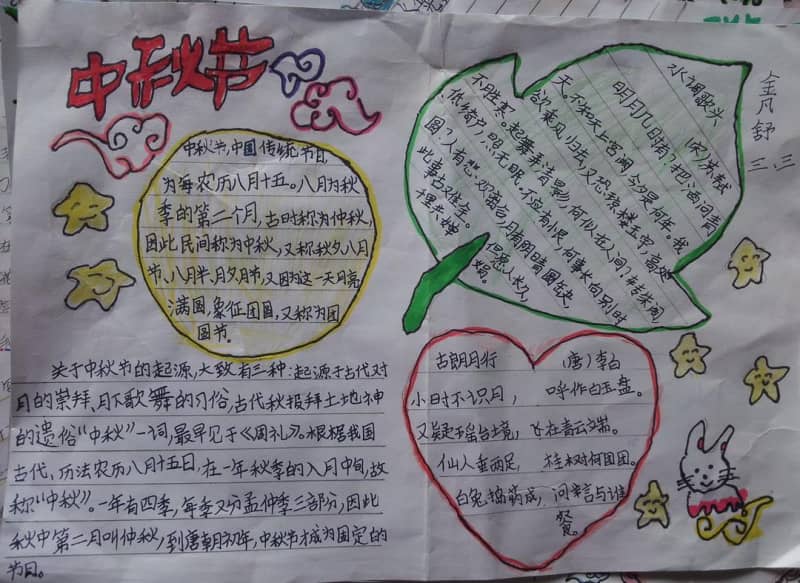 中秋节
中秋节,中国传统节日,
为每农历八月十五。八月为秋
季的第二个月,古时称为仲秋,
因此民间称为中秋,又称秋夕八月
节、八月半、月夕月节,又因为这一天月亮
满圆,象征团圆,又称为团
圆节。
关于中秋节的起源,大致有三种:起源于古代对
月的崇拜、月下歌舞的习俗,古代秋报拜土地神
的遗俗“中秋”一词,最早见于《周礼》。根据我国
古代、历法农历八月十五日,在一年秋季的八月中旬,故
称“中秋”。一年有四季,每季又分孟仲季三部分,因此
秋中第二月叫仲秋,到唐朝初年,中秋节才成为固定的
节日。
水调歌头
(宋)苏轼
明月几时有?把酒问青
天。不知天上宫阙,今夕是何年。我
欲乘风归去,又恐琼楼玉宇,高处
不胜寒。起舞弄清影,何似在人间?转朱阁
低绮户,照无眠。不应有恨,何事长向别时
圆?人有悲欢离合,月有阴晴圆缺,
此事古难全。但愿人长久,
千里共婵
娟。
金凡舒
三.三
古朗月行 (唐)李白
小时不识月, 呼作白玉盘。
又疑瑶台境, 飞在青云端。
仙人垂两足, 桂树何团团。
白兔捣药成, 问言与谁
餐。